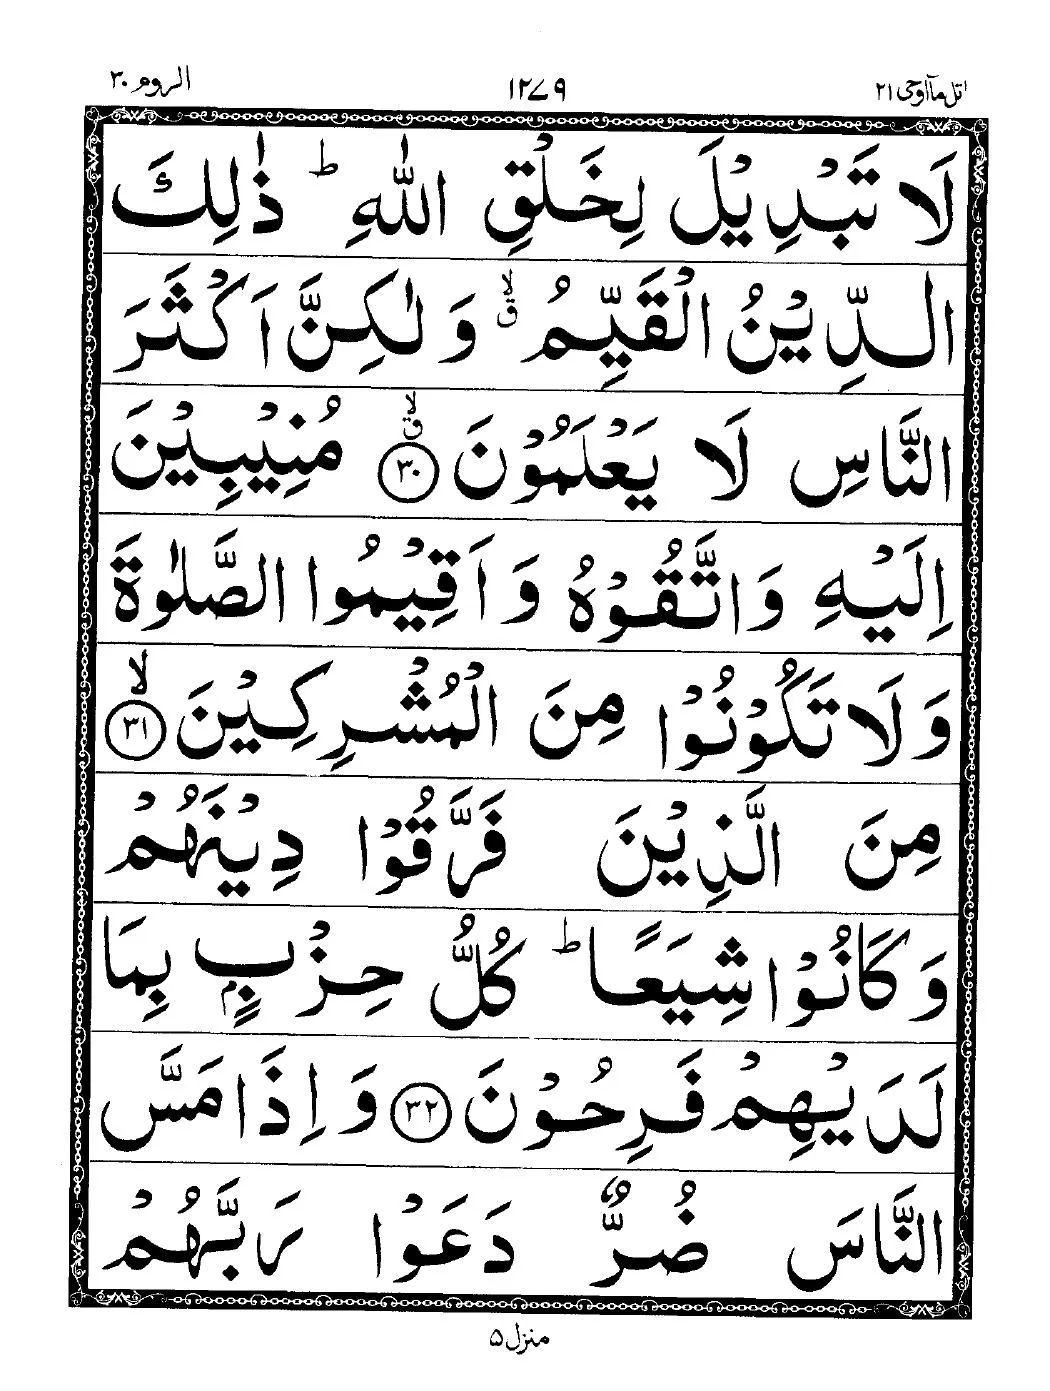 اتل مآ اوحی ۲۱ ۱۲۷۹ الروم ۳۰
لَا تَبْدِيْلَ لِخَلْقِ اللّٰهِ ؕ ذٰلِكَ
الدِّيْنُ الْقَيِّمُ ۙۗ وَلٰكِنَّ اَكْثَرَ
النَّاسِ لَا يَعْلَمُوْنَ ۙۗ ﴿۳۰﴾ مُنِيْبِيْنَ
اِلَيْهِ وَاتَّقُوْهُ وَاَقِيْمُوا الصَّلٰوةَ
وَلَا تَكُوْنُوْا مِنَ الْمُشْرِكِيْنَ ۙ ﴿۳۱﴾
مِنَ الَّذِيْنَ فَرَّقُوْا دِيْنَهُمْ
وَكَانُوْا شِيَعًا ؕ كُلُّ حِزْبٍۭ بِمَا
لَدَيْهِمْ فَرِحُوْنَ ﴿۳۲﴾ وَاِذَا مَسَّ
النَّاسَ ضُرٌّ دَعَوْا رَبَّهُمْ
منزل ۵